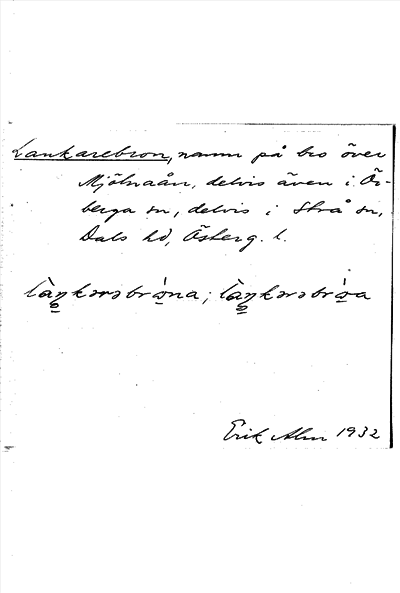 Lankarebron, namn på bro över
Mjölnaån, delvis även i Ör-
berga sn, delvis i Strå sn,
Dals hd, Österg. l.
Erik Alm 1932